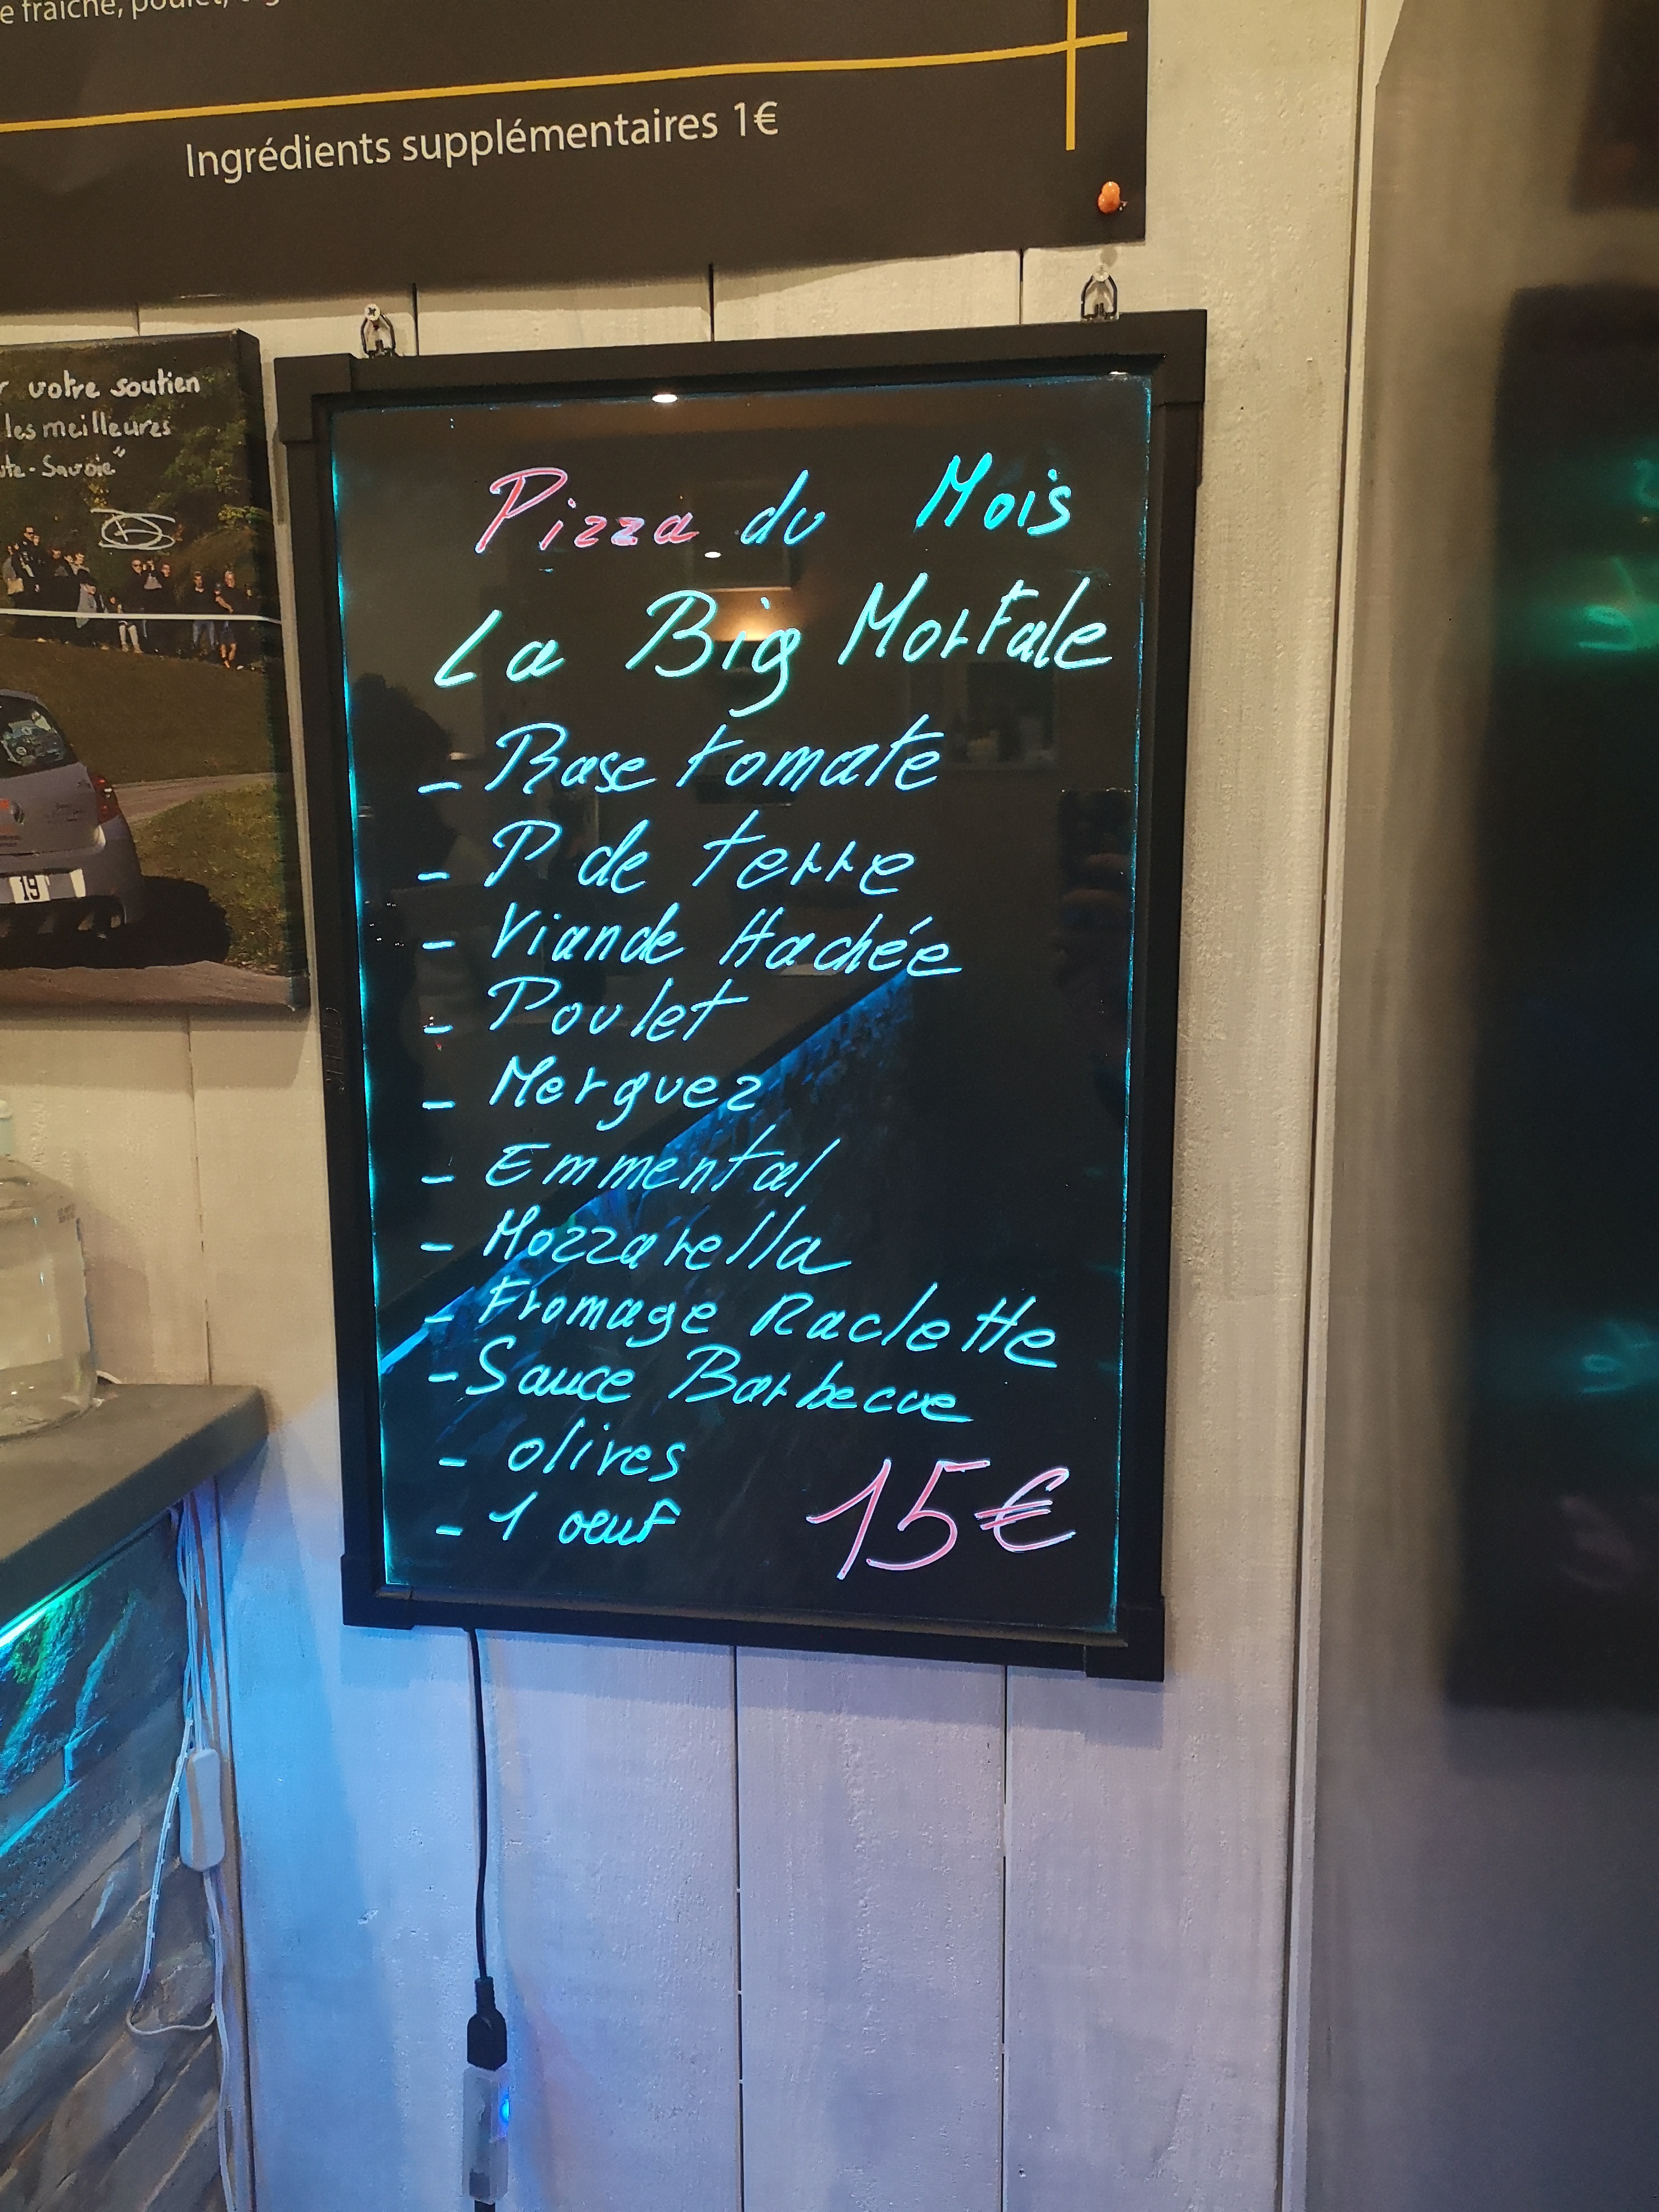 e fraîche, poulet,
Ingrédients supplémentaires 1€
votre soutien
les meilleures
te-Savoie"
19
Pizza du Mois
La Big Mortale
- Base tomate
- P de terre
- Viande Hachée
- Poulet
- Merguez
- Emmental
- Mozzarella
- Fromage Raclette
- Sauce Barbecue
- olives
- 1 oeuf
15€